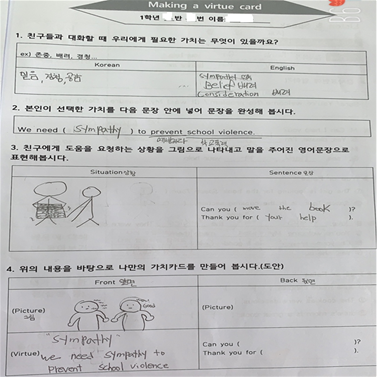 Making a virtue card
1학년 반 번 이름
1. 친구들과 대화할 때 우리에게 필요한 가치는 무엇이 있을까요?
ex) 존중, 배려, 경청...
Korean English
믿음, 공감 sympathy 공감
Belief
Consideration 배려
2. 본인이 선택한 가치를 다음 문장 안에 넣어 문장을 완성해 봅시다.
We need ( sympathy ) to prevent school violence.
예방하다 학교폭력
3. 친구에게 도움을 요청하는 상황을 그림으로 나타내고 말을 주어진 영어문장으로
표현해봅시다.
Situation상황 Sentence문장
Can you ( move the book )?
Thank you for ( your help ).
4. 위의 내용을 바탕으로 나만의 가치카드를 만들어 봅시다.(도안)
Front 앞면 Back 뒷면
(Picture) (Picture)
그림
"sympathy" Can you ( )?
(Virtue) we need sympathy to Thank you for ( ).
prevent school violence